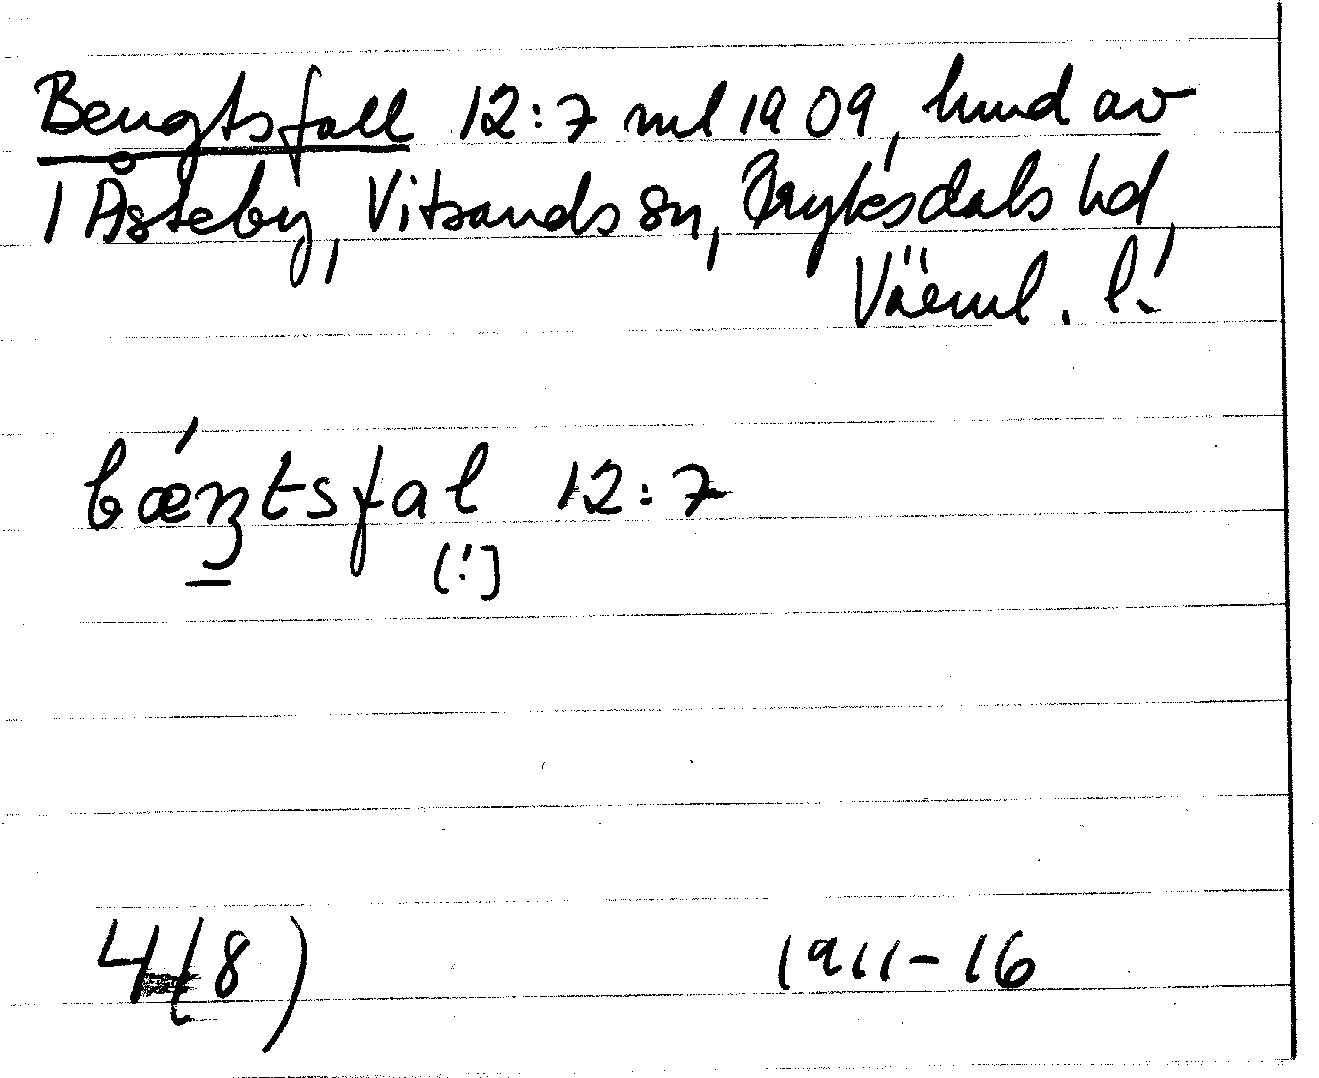 Bengtsfall 12:7 ml 1909, hmd av
1 Åsteby, Vitsands sn, Fryksdals hd,
Värml. l.
bǽntsfal 12:7
[!]
4(8)
1911-16